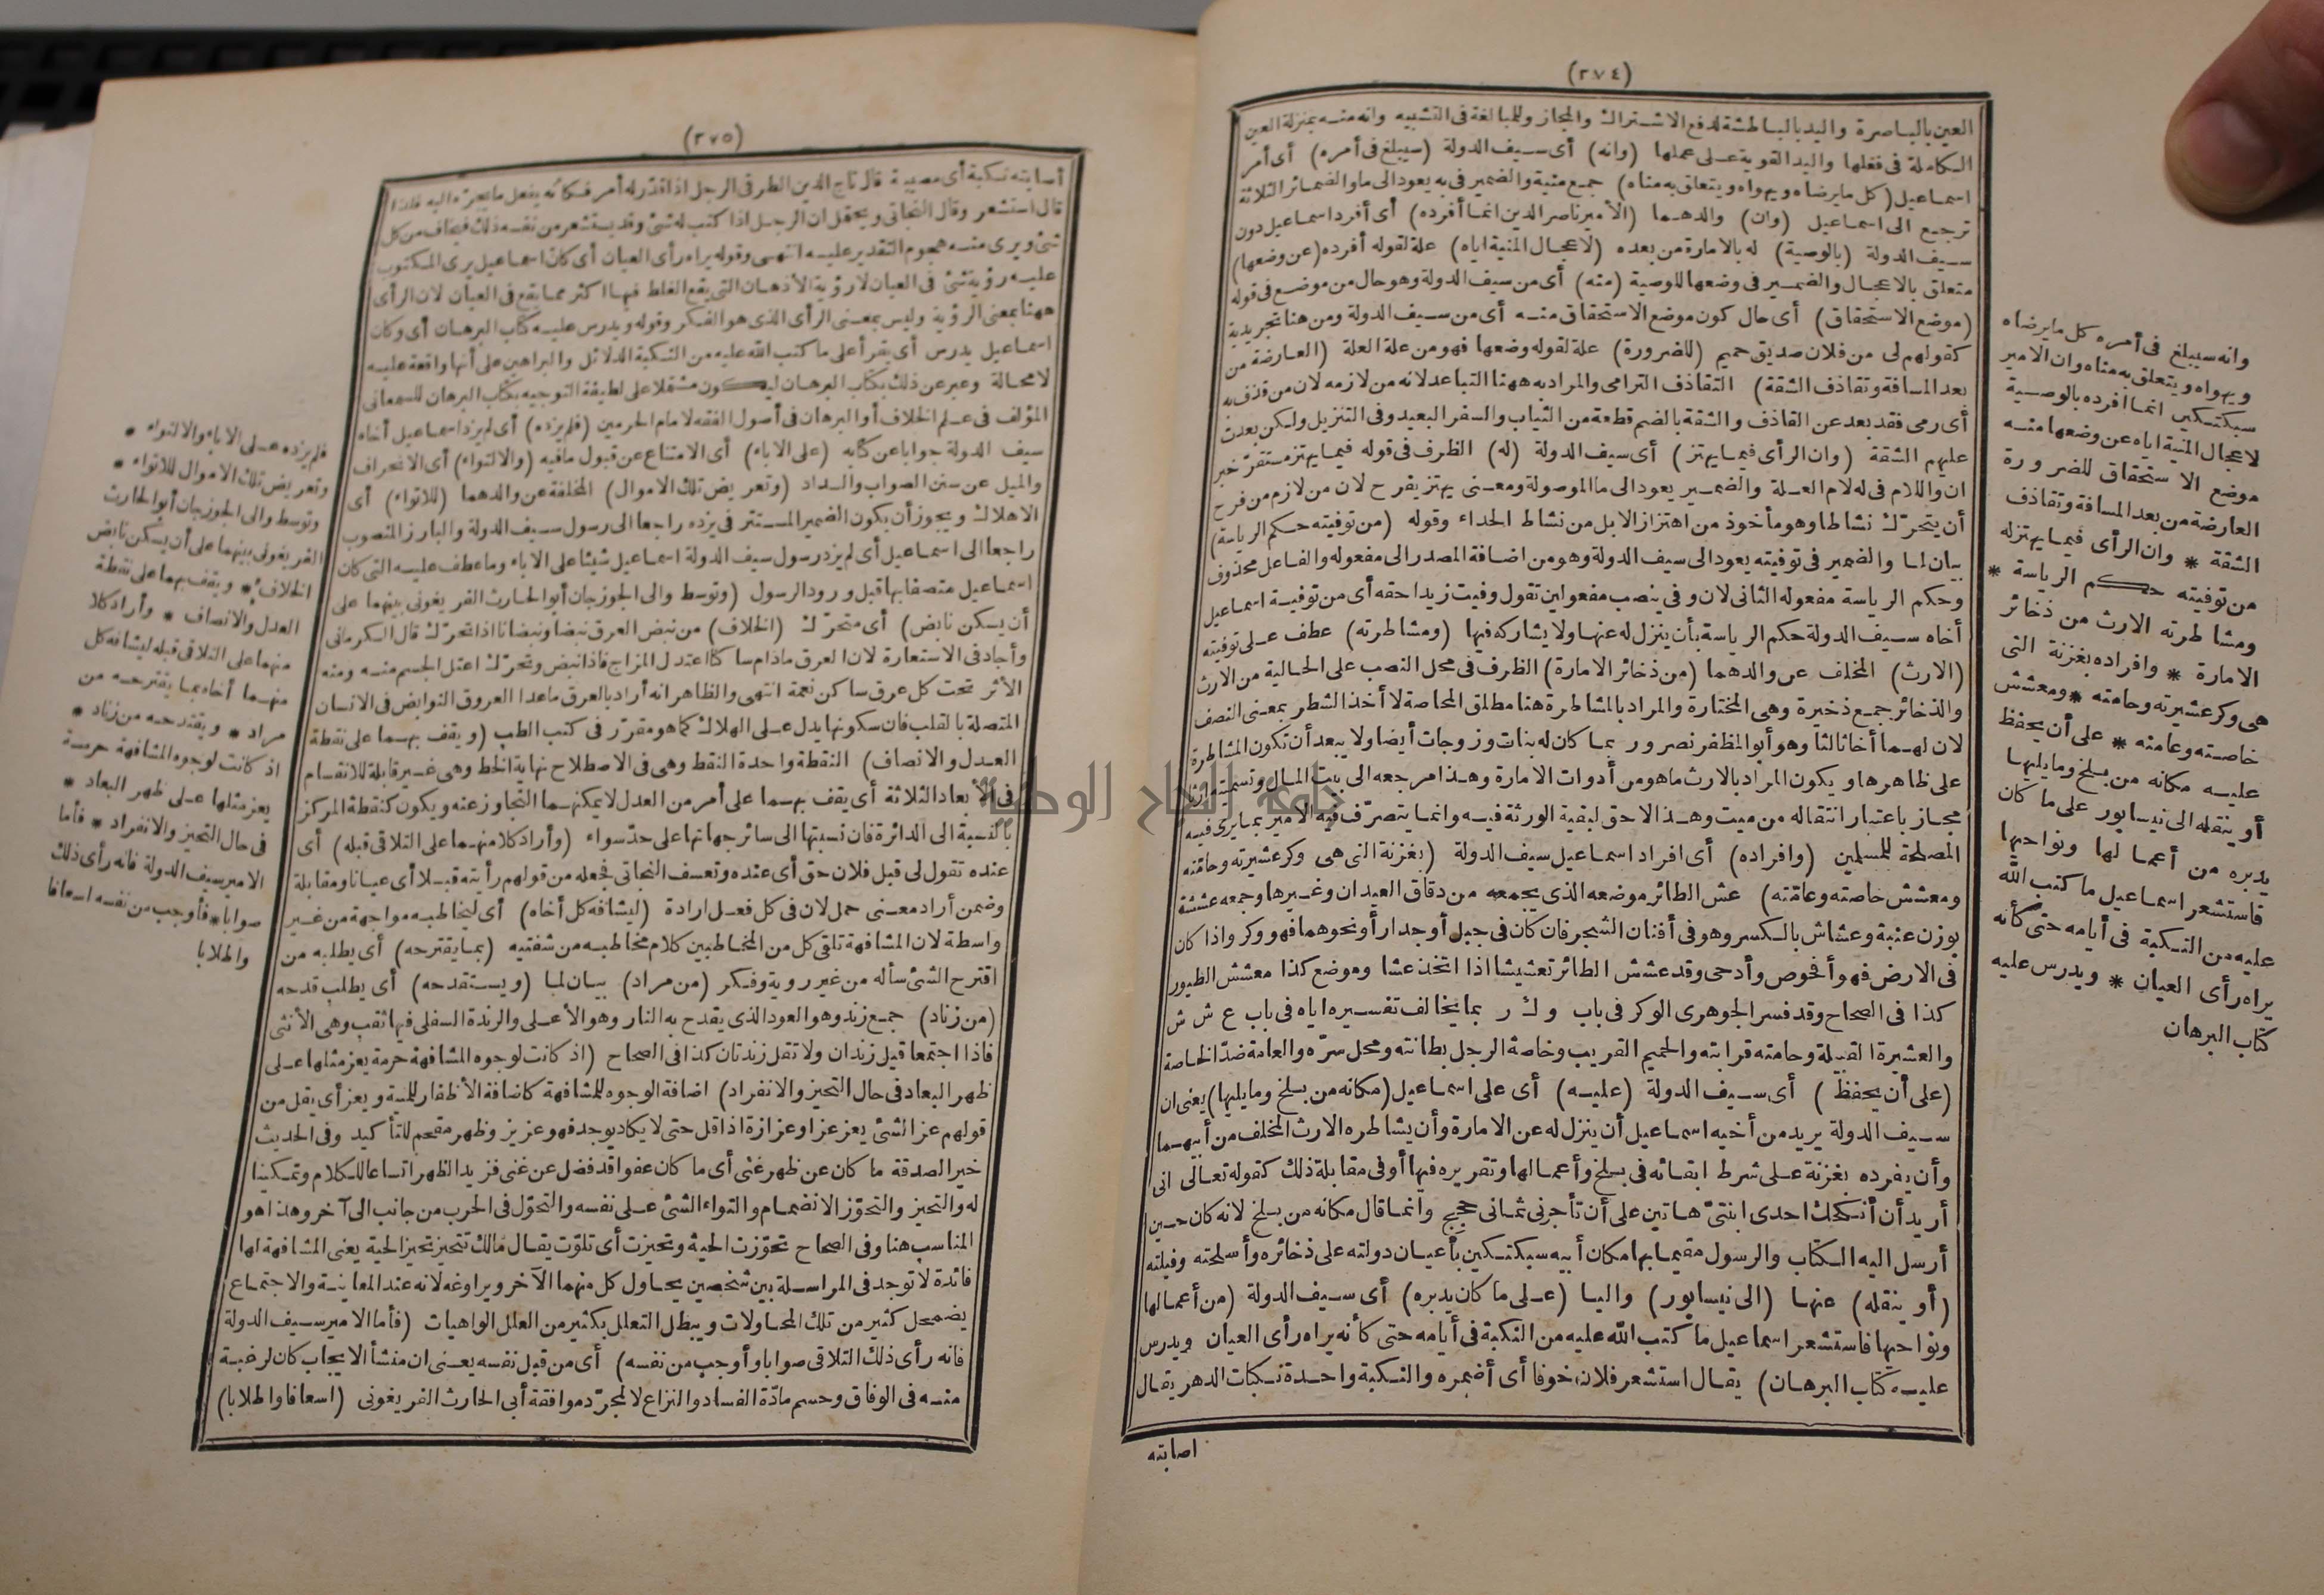 (٢٧٤)
العين بالباصرة واليد بالباطشة لدفع الاشتراك والمجاز وللمبالغة فى التشبيه وانه منه بمنزلة العين
الكاملة فى فعلها واليد القوية على عملها (وانه) أى سيف الدولة (سيبلغ فى أمره) أى أمر
اسماعيل (كل ما يرضاه ويهواه ويتعلق به مناه) جمع منية والضمير فى به يعود الى ما والضمائر الثلاثة
ترجع الى اسماعيل (وان) والدهما (الأمير ناصر الدين انما أفرده) أى أفرد اسماعيل دون
سيف الدولة (بالوصية) له بالامارة من بعده (لاعجال المنية اياه) علة لقوله أفرده (عن وضعها)
متعلق بالاعجال والضمير فى وضعها للوصية (منه) أى من سيف الدولة وهو حال من موضع فى قوله
(موضع الاستحقاق) أى حال كون موضع الاستحقاق منه أى من سيف الدولة ومن هنا تجريدية
كقولهم لى من فلان صديق حميم (للضرورة) علة لقوله وضعها فهو من علة العلة (العارضة من
بعد المسافة وتقاذف الشقة) التقاذف الترامى والمراد به ههنا التباعد لانه من لازمه لان من قذف به
أى رمى فقد بعد عن القاذف والشقة بالضم قطعة من الثياب والسفر البعيد وفى التنزيل ولكن بعدت
عليهم الشقة (وان الرأى فيما يهتز) أى سيف الدولة (له) الظرف فى قوله فيما يهتز مستقر خبر
ان واللام فى له لام العلة والضمير يعود الى ما الموصولة ومعنى يهتز يفرح لان من لازم من فرح
أن يتحرّك نشاطا وهو مأخوذ من اهتزاز الابل من نشاط الحداء وقوله (من توفيته حكم الرياسة)
بيان لما والضمير فى توفيته يعود الى سيف الدولة وهو من اضافة المصدر الى مفعوله والفاعل محذوف
وحكم الرياسة مفعوله الثانى لان وفى ينصب مفعولين تقول وفيت زيدا حقه أى من توفية اسماعيل
أخاه سيف الدولة حكم الرياسة بأن ينزل له عنها ولا يشاركه فيها (ومشاطرته) عطف على توفيته
(الارث) المخلف عن والدهما (من ذخائر الامارة) الظرف فى محل النصب على الحالية من الارث
والذخائر جمع ذخيرة وهى المختارة والمراد بالمشاطرة هنا مطلق المحاصة لا أخذ الشطر بمعنى النصف
لان لهما أخا ثالثا وهو أبو المظفر نصر ور بما كان له بنات وزوجات أيضا ولا يبعد أن تكون المشاطرة
على ظاهرها ويكون المراد بالارث ما هو من أدوات الامارة وهذا مرجعه الى بيت المال وتسميته ارثا
مجاز باعتبار انتقاله من ميت وهذا لا حق لبقية الورثة فيه وانما يتصرّف فيه الأمير بما يرى فيه
المصلحة للمسلمين (وافراده) أى افراد اسماعيل سيف الدولة (بغزنة التى هى وكر عشيرته وحامته
ومعشش خاصته وعامّته) عش الطائر موضعه الذى يجمعه من دقاق العيدان وغيرها وجمعه عششة
بوزن عنبة وعشاش بالكسر وهو فى أفنان الشجر فان كان فى جبل أو جدار أو نحوهما فهو وكر واذا كان
فى الارض فهو أفحوص وأدحى وقد عشش الطائر تعشيشا اذا اتخذ عشا وموضع كذا معشش الطيور
كذا فى الصحاح وقد فسر الجوهرى الوكر فى باب و ك ر بما يخالف تفسيره اياه فى باب ع ش ش
والعشيرة القبيلة وحامته قرابته والحميم القريب وخاصة الرجل بطانته ومحل سرّه والعامة ضدّ الخاصة
(على أن يحفظ) أى سيف الدولة (عليه) أى على اسماعيل (مكانه من بلخ وما يليها) يعنى ان
سيف الدولة يريد من أخيه اسماعيل أن ينزل له عن الامارة وأن يشاطره الارث المخلف من أبيهما
وأن يفرده بغزنة على شرط ابقائه فى بلخ وأعمالها وتقريره فيها أو فى مقابلة ذلك كقوله تعالى انى
أريد أن أنكحك احدى ابنتىّ هاتين على أن تأجرنى ثمانى حجج وانما قال مكانه من بلخ لانه كان حين
أرسل اليه الكتاب والرسول مقيما بها مكان أبيه سبكتكين بأعيان دولته على ذخائره وأسلحته وفيلته
(أو ينقله) عنها (الى نيسابور) واليا (على ما كان يدبره) أى سيف الدولة (من أعمالها
ونواحيها فاستشعر اسماعيل ما كتب اللّه عليه من النكبة فى أيامه حتى كأنه يراه رأى العيان ويدرس
عليه كتاب البرهان) يقال استشعر فلان خوفا أى أضمره والنكبة واحدة نكبات الدهر يقال
اصابته
وانه سيبلغ فى أمره كل ما يرضاه
ويهواه ويتعلق به مناه وان الامير
سبكتكين انما أفرده بالوصية
لاعجال المنية اياه عن وضعها منه
موضع الاستحقاق للضرورة
العارضة من بعد المسافة وتقاذف
الشقة * وان الرأى فيما يهتزله
من توفيته حكم الرياسة *
ومشاطرته الارث من ذخائر
الامارة * وافراده بغزنة التى
هى وكر عشيرته وحامته * ومعشش
خاصته وعامته * على أن يحفظ
عليه مكانه من بلخ وما يليها
أو ينقله الى نيسابور على ما كان
يدبره من أعمالها ونواحيها
فاستشعر اسماعيل ما كتب اللّه
عليه من النكبة فى أيامه حتى كأنه
يراه رأى العيان * ويدرس عليه
كتاب البرهان
(٢٧٥)
أصابته نكبة أى مصيبة قال تاج الدين الطرفى الرجل اذا قدّر له أمر فكأنه يفعل ما يجرّه اليه فلذا
قال استشعر وقال النجاتى ويحتمل ان الرجل اذا كتب له شئ وقد يستشعر من نفسه ذلك فيخاف من كل
شئ ويرى منه هجوم التقدير عليه انتهى وقوله يراه رأى العيان أى كان اسماعيل يرى المكتوب
عليه رؤية شئ فى العيان لا رؤية الأذهان التى يقع الغلط فيها اكثر مما يقع فى العيان لان الرأى
ههنا بمعنى الرؤية وليس بمعنى الرأى الذى هو الفكر وقوله ويدرس عليه كتاب البرهان أى وكان
اسماعيل يدرس أى يقرأ على ما كتب اللّه عليه من النكبة الدلائل والبراهين على أنها واقعة عليه
لا محالة وعبر عن ذلك بكتاب البرهان ليكون مشتملا على لطيفة التوجيه بكتاب البرهان للسمعانى
المؤلف فى علم الخلاف أو البرهان فى أصول الفقه لامام الحرمين (فلم يزده) أى لم يزد اسماعيل أخاه
سيف الدولة جوابا عن كتابه (على الاباء) أى الامتناع عن قبول ما فيه (والالتواء) أى الانحراف
والميل عن سنن الصواب والسداد (وتعريض تلك الاموال) المخلفة عن والدهما (للاتواء) أى
الاهلاك ويجوز أن يكون الضمير المستتر فى يزده راجعا الى رسول سيف الدولة والبارز المنصوب
راجعا الى اسماعيل أى لم يزد رسول سيف الدولة اسماعيل شيئا على الاباء وما عطف عليه التى كان
اسماعيل متصفا بها قبل ورود الرسول (وتوسط والى الجوزجان أبو الحارث الفريغونى بينهما على
أن يسكن نابض) أى متحرّك (الخلاف) من نبض العرق نبضا ونبضانا اذا تحرّك قال الكرمانى
وأجاد فى الاستعارة لان العرق ما دام ساكنا اعتدل المزاج فاذا نبض وتحرّك اعتل الجسم منه ومنه
الأثر تحت كل عرق ساكن نعمة انتهى والظاهر انه أراد بالعرق ما عدا العروق النوابض فى الانسان
المتصلة بالقلب فان سكونها يدل على الهلاك كما هو مقرّر فى كتب الطب (ويقف بهما على نقطة
العدل والانصاف) النقطة واحدة النقط وهى فى الاصطلاح نهاية الخط وهى غير قابلة للانقسام
فى الأبعاد الثلاثة أى يقف بهما على أمر من العدل لا يمكنهما التجاوز عنه ويكون كنقطة المركز
بالنسبة الى الدائرة فان نسبتها الى سائر جهاتها على حدّ سواء (وأراد كلا منهما على التلاقى قبله) أى
عنده تقول لى قبل فلان حق أى عنده وتعسف النجاتى فجعله من قولهم رأيته قبلا أى عيانا ومقابلة
وضمن أراد معنى حمل لان فى كل فعل ارادة (ليشافه كل أخاه) أى ليخاطبه مواجهة من غير
واسطة لان المشافهة تلقى كل من المخاطبين كلام مخاطبه من شفتيه (بما يقترحه) أى يطلبه من
اقترح الشئ سأله من غير روية وفكر (من مراد) بيان لما (ويستقدحه) أى يطلب قدحه
(من زناد) جمع زند وهو العود الذى يقدح به النار وهو الأعلى والزندة السفلى فيها ثقب وهى الأنثى
فاذا اجتمعا قيل زندان ولا تقل زندتان كذا فى الصحاح (اذ كانت لوجوه المشافهة حرمة يعز مثلها على
ظهر البعاد فى حال التحيز والانفراد) اضافة الوجوه للمشافهة كاضافة الأظفار للمنية ويعز أى يقل من
قولهم عز الشئ يعز عزا وعزازة اذا قل حتى لا يكاد يوجد فهو عزيز وظهر مقحم للتأكيد وفى الحديث
خير الصدقة ما كان عن ظهر غنى أى ما كان عفوا قد فضل عن غنى فزيد الظهر اتساعا للكلام وتمكينا
له والتحيز والتحوّز الانضمام والتواء الشئ على نفسه والتحوّل فى الحرب من جانب الى آخر وهذا هو
المناسب هنا وفى الصحاح تحوّزت الحية وتحيزت أى تلوّت يقال مالك تتحيز تحيز الحية يعنى المشافهة لها
فائدة لا توجد فى المراسلة بين شخصين يحاول كل منهما الآخر ويراوغه لانه عند المعاينة والاجتماع
يضمحل كثير من تلك المحاولات ويبطل التعلل بكثير من العلل الواهيات (فأما الامير سيف الدولة
فانه رأى ذلك التلاقى صوابا وأوجب من نفسه) أى من قبل نفسه يعنى ان منشأ الايجاب كان لرغبة
منه فى الوفاق وحسم مادّة الفساد والنزاع لا لمجرّد موافقة أبى الحارث الفريغونى (اسعافا واطلابا)
فلم يزده على الاباء والالتواء *
وتعريض تلك الاموال للاتواء *
وتوسط والى الجوزجان أبو الحارث
الفريغونى بينهما على أن يسكن نابض
الخلاف * ويقف بهما على نقطة
العدل والانصاف * وأراد كلا
منهما على التلاقى قبله ليشافه كل
منهما أخاه بما يقترحه من
مراد * ويقتدحه من زناد *
اذ كانت لوجوه المشافهة حرمة
يعز مثلها على ظهر البعاد *
فى حال التحيز والانفراد * فأما
الامير سيف الدولة فانه رأى ذلك
صوابا * فأوجب من نفسه اسعافا
واطلابا
جامعة النجاح الوطنية